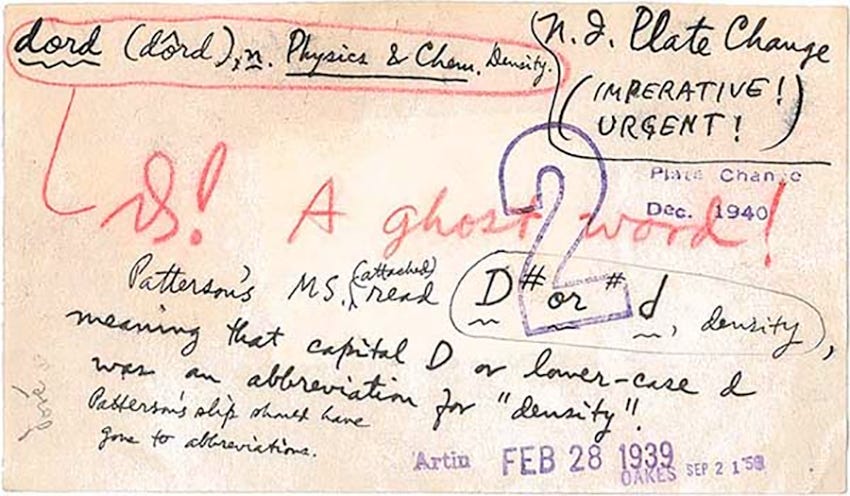 dord (dôrd), n. Physics & Chem. Density.
N. I. Plate Change
(IMPERATIVE!
URGENT!)
Plate Change
Dec. 1940
! A ghost word!
2
Patterson's MS. (attached) read D # or # d, density,
meaning that capital D or lower-case d
was an abbreviation for "density".
Patterson's slip should have
gone to abbreviations.
Artin FEB 28 1939
OAKES SEP 21 '50